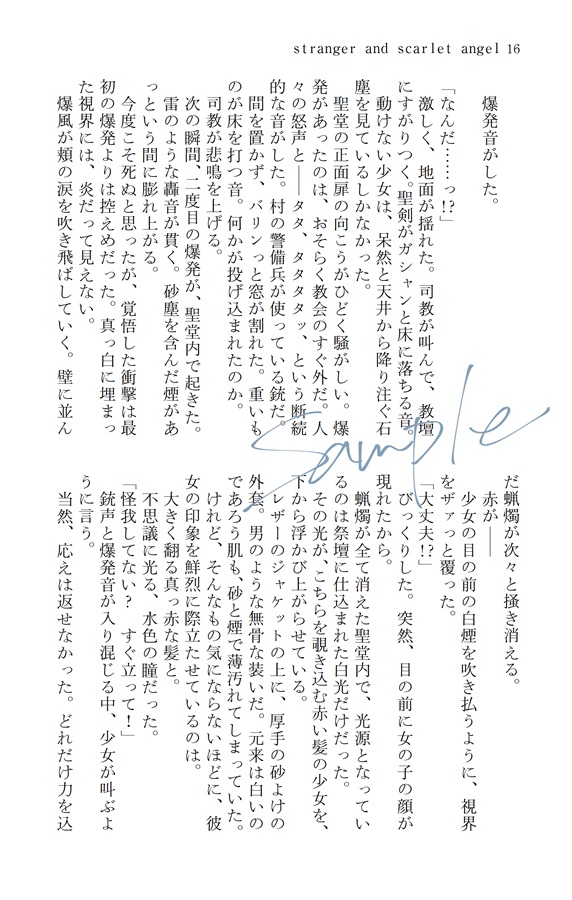 stranger and scarlet angel 16
爆発音がした。
「なんだ……っ!?」
激しく、地面が揺れた。司教が叫んで、教壇
にすがりつく。聖剣がガシャンと床に落ちる音。
動けない少女は、呆然と天井から降り注ぐ石
塵を見ているしかなかった。
聖堂の正面扉の向こうがひどく騒がしい。爆
発があったのは、おそらく教会のすぐ外だ。人
々の怒声と――タタ、タタタタッ、という断続
的な音がした。村の警備兵が使っている銃だ。
間を置かず、バリンっと窓が割れた。重いも
のが床を打つ音。何かが投げ込まれたのか。
司教が悲鳴を上げる。
次の瞬間、二度目の爆発が、聖堂内で起きた。
雷のような轟音が貫く。砂塵を含んだ煙があ
っという間に膨れ上がる。
今度こそ死ぬと思ったが、覚悟した衝撃は最
初の爆発よりは控えめだった。真っ白に埋まっ
た視界には、炎だって見えない。
爆風が頬の涙を吹き飛ばしていく。壁に並ん
だ蝋燭が次々と掻き消える。
赤が――
少女の目の前の白煙を吹き払うように、視界
をザァっと覆った。
「大丈夫!?」
びっくりした。突然、目の前に女の子の顔が
現れたから。
蝋燭が全て消えた聖堂内で、光源となってい
るのは祭壇に仕込まれた白光だけだった。
その光が、こちらを覗き込む赤い髪の少女を、
下から浮かび上がらせている。
レザーのジャケットの上に、厚手の砂よけの
外套。男のような無骨な装いだ。元来は白いの
であろう肌も、砂と煙で薄汚れてしまっていた。
けれど、そんなもの気にならないほどに、彼
女の印象を鮮烈に際立たせているのは。
大きく翻る真っ赤な髪と。
不思議に光る、水色の瞳だった。
「怪我してない？　すぐ立って！」
銃声と爆発音が入り混じる中、少女が叫ぶよ
うに言う。
当然、応えは返せなかった。どれだけ力を込
Sample